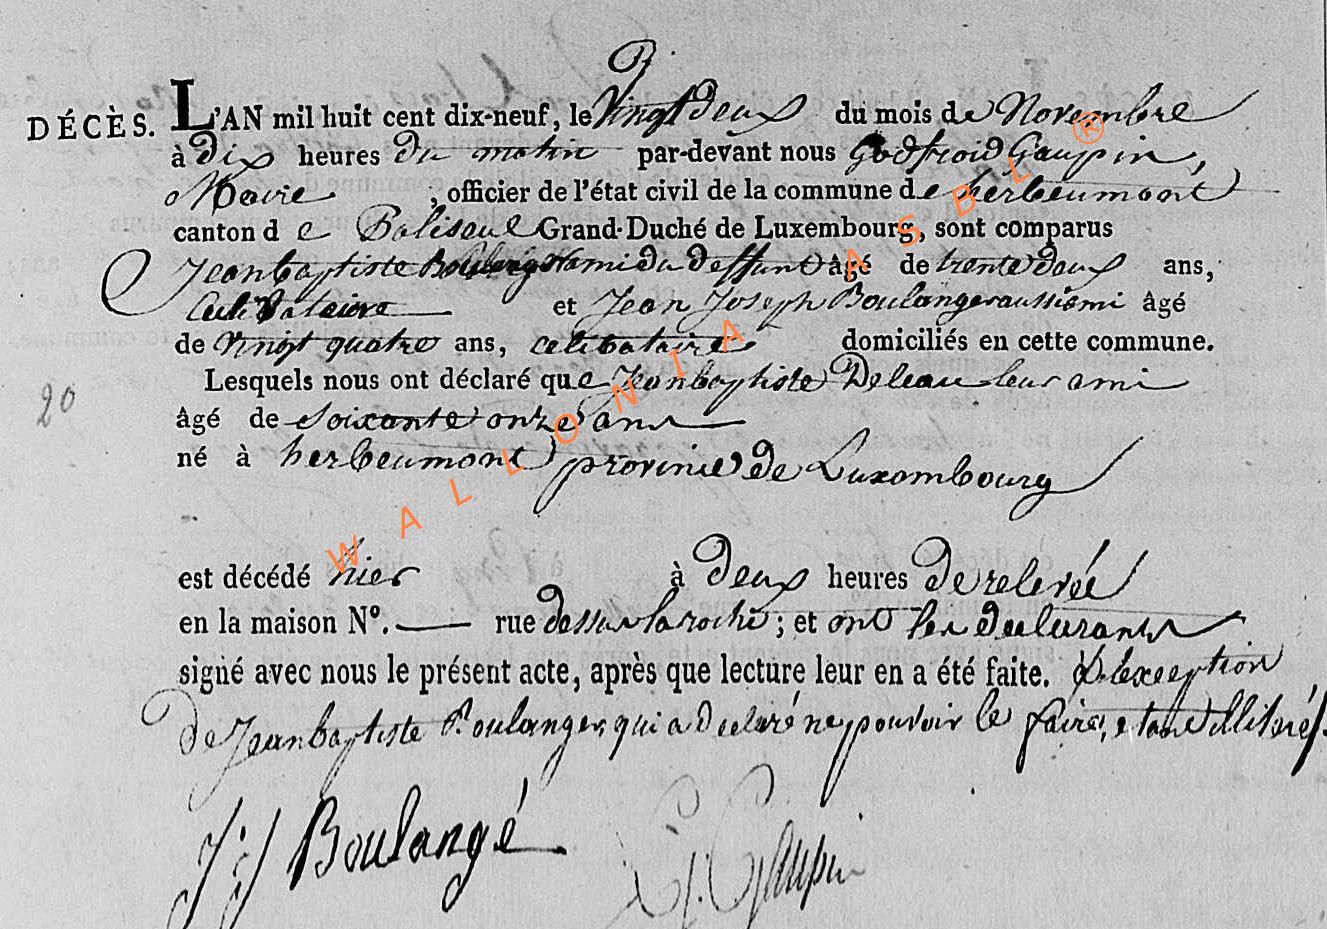 DÉCÈS. L'AN mil huit cent dix-neuf, le Vingt deux du mois de Novembre
à dix heures du matin par-devant nous Godfroid Gaupin,
Maire, officier de l'état civil de la commune de herbeumont
canton de Paliseul Grand-Duché de Luxembourg, sont comparus
Jean baptiste Boulanger ami du deffunt âgé de trente deux ans,
Celibataire et Jean Joseph Boulanger aussi ami âgé
de vingt quatre ans, celibataire domiciliés en cette commune.
Lesquels nous ont déclaré que Jean baptiste Deleau leur ami
20
âgé de soixante onze ans
né à herbeumont province de Luxembourg
est décédé hier à deux heures de relevée
en la maison N°. — rue dessus la roche; et ont les declarants
signé avec nous le présent acte, après que lecture leur en a été faite. à l'exception
de Jean baptiste Boulanger, qui a declaré ne pouvoir le faire, etant illiteré.
J: J Boulangé
G. Gaupin
WALLONIA ASBL ®